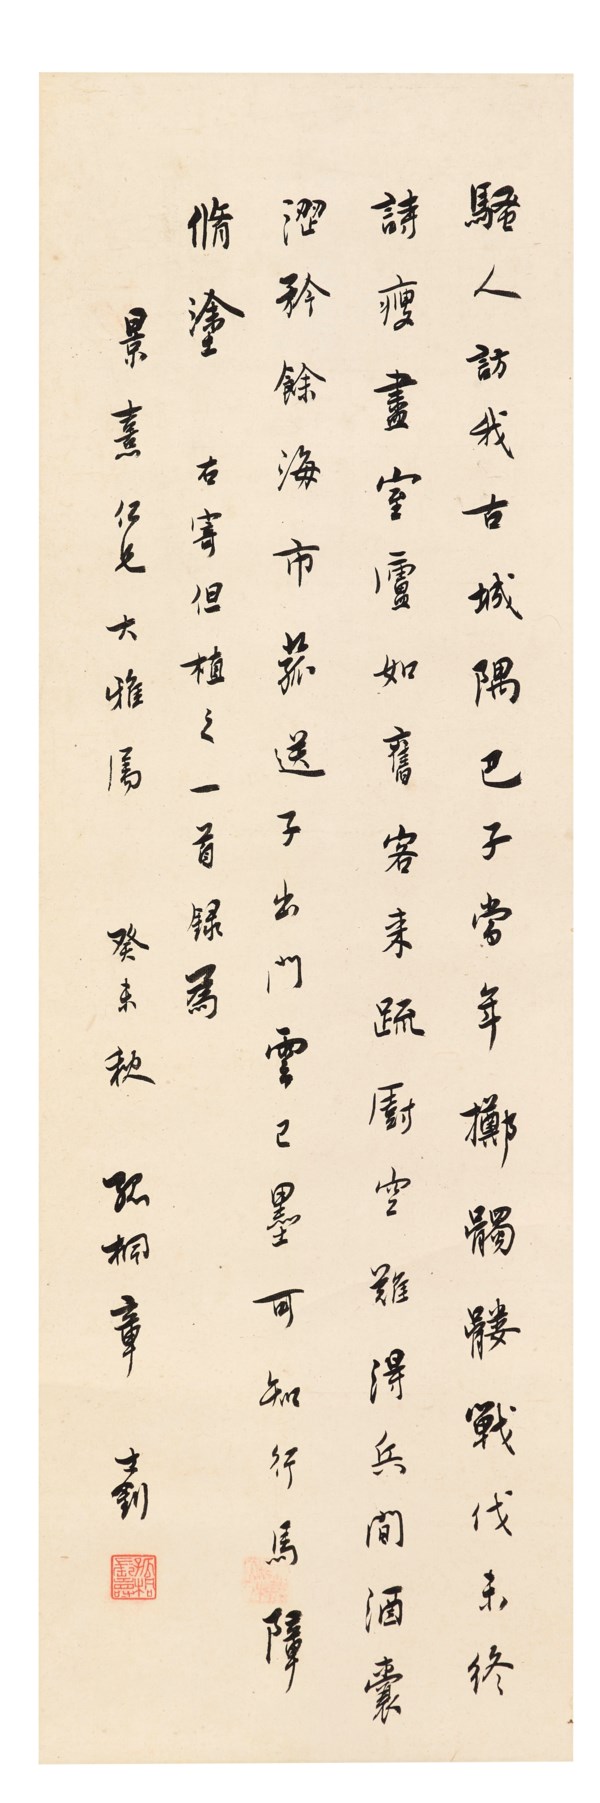 騷人訪我古城隅巴子當年擲髑髏戰伐未終
詩瘦盡室廬如舊客來疏廚空難得兵間酒囊
澀矜餘海市菰送子出門雲已墨可知行馬障
脩塗 右寄但植之一首錄為
景熹仁兄大雅屬 癸未秋 孤桐章士釗